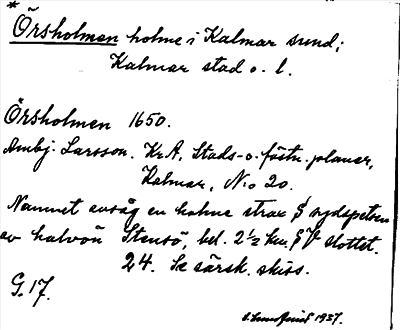 *
Örsholmen holme i Kalmar sund;
Kalmar stad o. l.
Örsholmen 1650.
Ambj. Larsson. Kr.A, Stads- o. fästn. planer,
Kalmar, N:o 20.
Namnet avsåg en holme strax S sydspetsen
av halvön Stensö, bel. 2½ km, SV slottet.
24. Se särsk. skiss.
G. 17.
1937.